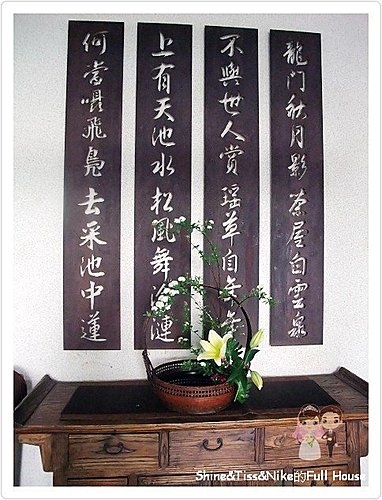 龍门秋月影茶屋白雲泉
不與世人賞瑶草自年年
上有天池水松風舞淪漣
何當躡飛鳧去采池中蓮
Shine&Tiss&Nike的Full House